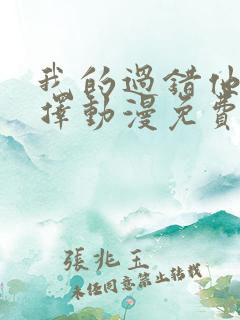 我的過錯他
擇動漫免費
張兆玉
未经同意禁止转载